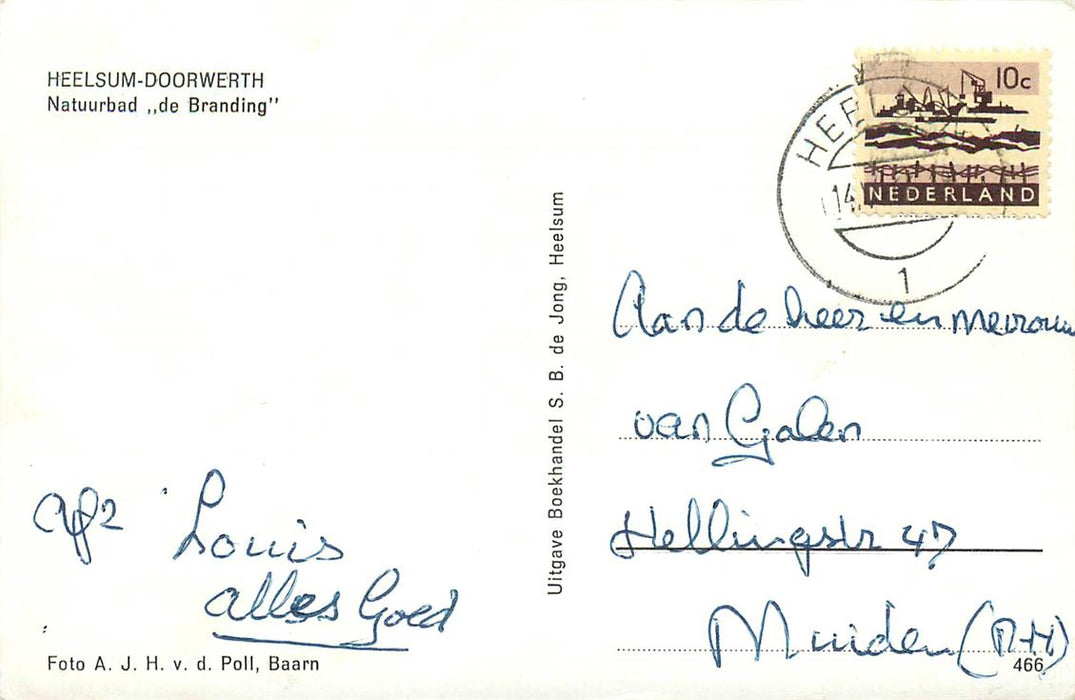 HEELSUM-DOORWERTH
Natuurbad „de Branding”
Louis
alles Goed
Foto A. J. H. v. d. Poll, Baarn
Uitgave Boekhandel S. B. de Jong, Heelsum
10c
NEDERLAND
HEELSUM
14
1
Aan de heer en mevrouw
van Galen
Hellingstr 47
Muiden (N-H)
466